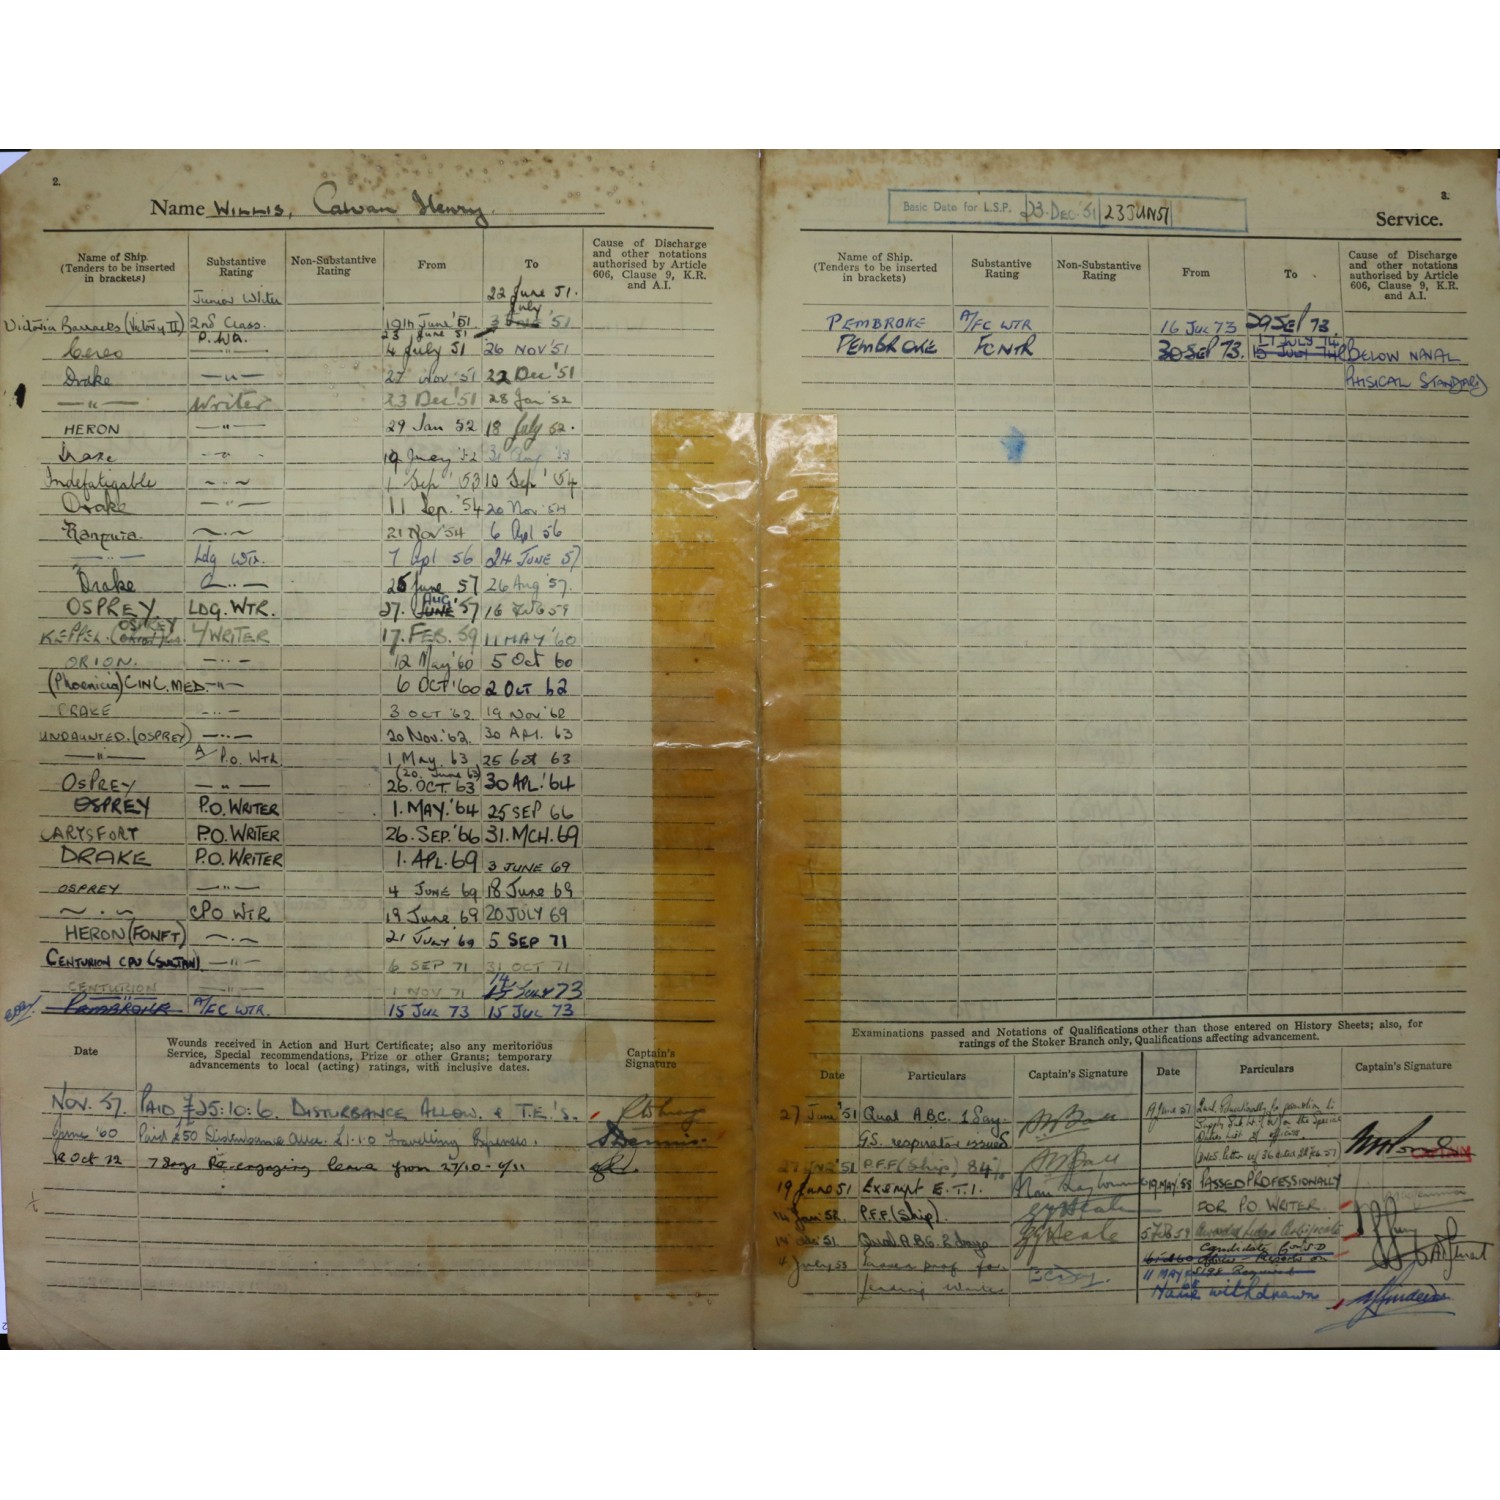 2.
Name WILLIS, Calvan Henry.
Name of Ship. (Tenders to be inserted in brackets) Substantive Rating Non-Substantive Rating From To Cause of Discharge and other notations authorised by Article 606, Clause 9, K.R. and A.I.
Junior Writer 22 June 51.
Victoria Barracks (Victory II) 2nd Class. 19th June '51 3 July '51
P. Wtr. 23 June 51
Ceres —"— 4 July 51 26 NOV '51
Drake —"— 27 Nov '51 22 Dec '51
—"— Writer 23 Dec '51 28 Jan '52
HERON —"— 29 Jan 52 18 July 52.
Drake —"— 19 53
Indefatigable —"— 1 Sep '53 10 Sep '54
Drake —"— 11 Sep. '54 20 Nov '54
—"— 21 Nov '54 6 Apl 56
—"— Ldg Wtr. 7 Apl 56 24 JUNE 57
Drake —"— 25 June 57 26 Aug '57.
OSPREY LDG. WTR. 27. AUG JUNE '57 16 FEB 59
KEPPEL (OSPREY) L/WRITER 17. FEB. 59 11 MAY '60
ORION. —"— 12 May '60 5 Oct 60
(Phoenicia) C IN C. MED. —"— 6 OCT '60 2 OCT 62
DRAKE —"— 3 OCT '62. 19 NOV '62
UNDAUNTED. (OSPREY) —"— 20 Nov. '62. 30 APL. 63
—"— A/P.O. WTR 1 May. 63 25 Oct 63
(20. June 63)
OSPREY —"— 26. OCT. 63 30 APL. '64
OSPREY P.O. WRITER 1. MAY. '64 25 SEP 66
CARYSFORT P.O. WRITER 26. SEP. '66 31. MCH. 69
DRAKE P.O. WRITER 1. APL. 69 3 JUNE 69
OSPREY —"— 4 JUNE 69 18 June 69
—"— CPO WTR 19 June 69 20 JULY 69
HERON (FONFT) —"— 21 JULY 69 5 SEP 71
CENTURION CPU (SULTAN) —"— 6 SEP 71 31 OCT 71
CENTURION —"— 1 NOV 71 14 15 JULY 73
PEMBROKE A/FC WTR. 15 JUL 73 15 JUL 73
Date Wounds received in Action and Hurt Certificate; also any meritorious Service, Special recommendations, Prize or other Grants; temporary advancements to local (acting) ratings, with inclusive dates. Captain's Signature
NOV. 57. PAID £25:10:6. DISTURBANCE ALLOW. & T.E.'s.
June '60 Paid £50 Disturbance Allce. £1.1.0 Travelling Expenses.
12 Oct 72 7 days Re-engaging leave from 27/10 - 4/11
3.
Basic Date for L.S.P. 23. DEC. 51 23 JUN 51
Service.
Name of Ship. (Tenders to be inserted in brackets) Substantive Rating Non-Substantive Rating From To Cause of Discharge and other notations authorised by Article 606, Clause 9, K.R. and A.I.
PEMBROKE A/FC WTR 16 JUL 73 29 SEP 73.
17 JULY 74
PEMBROKE FCWTR 30 SEP 73. 15 JULY 74 BELOW NAVAL
PHYSICAL STANDARD
Examinations passed and Notations of Qualifications other than those entered on History Sheets; also, for ratings of the Stoker Branch only, Qualifications affecting advancement.
Date Particulars Captain's Signature Date Particulars Captain's Signature
27 June '51 Qual A.B.C. 1 Day.
G.S. respirator issued.
27 JNE '51 P.F.F (Ship) 84%
19 June 51 Exempt E.T.1.
14 Jan '52. P.F.F. (Ship).
Qual A.B.C. 2 days
4 July 53
19 MAY '58 PASSED PROFESSIONALLY
FOR P.O. WRITER.
5 FEB 59
Candidate
11 MAY
Name withdrawn